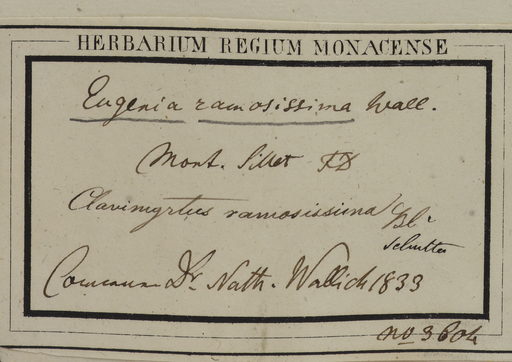 HERBARIUM REGIUM MONACENSE
Eugenia ramosissima Wall.
Mont. Sillet FD
Clavimyrtus ramosissima Bl.
Dr. Nath. Wallich 1833
no 3604